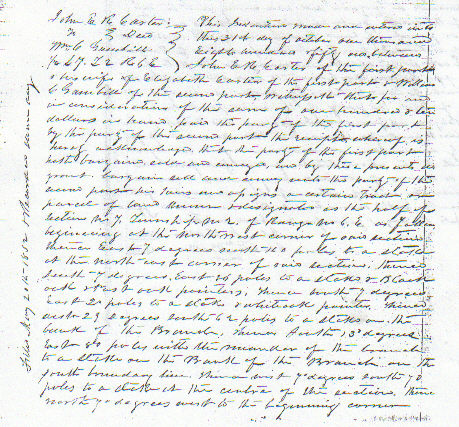 John E. R. Carter : This Indenture made and entered into
To } Deed } this 21st day of October one thousand
Wm. C. Gambill } Eight hundred & fifty one, between
½ S 7. T 2 R 6 E } John E. R. Carter of the first part
& his wife Elizabeth Carter of the first part & William
C. Gambill of the second part, witnesseth that for and
in consideration of the sum of one hundred &
dollars in hand paid the party of the first part
by the party of the second part the receipt whereof is
hereby acknowledged that the party of the first part
hath bargained sold and conveyed and by these presents do
grant bargain sell and convey unto the party of the
second part his heirs and assigns a certain tract or
parcel of land known & designated as the half of
Section No 7. Township No 2. of Range No 6. E. as follows
beginning at the north west corner of said section
thence East 7 degrees north 160 poles to a stake
at the north east corner of said section, thence
South 7 degrees East 36 poles to a stake & Black
oak & Post oak pointers, thence north 7 degrees
East 20 poles to a stake & white oak pointer. thence
east 23 degrees south 62 poles to a stake on the
bank of the Branch. thence South 13 degrees
East 80 poles with the meander of the branch
to a stake on the Bank of the Branch on the
south boundary line thence west 7 degrees south 70
poles to a stake at the centre of the section, thence
north 7 degrees west to the beginning corner
Filed May 20th 1852 & Recorded same day